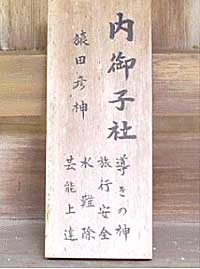 内御子社
猿田彦神
導きの神
旅行安全
水難除
芸能上達